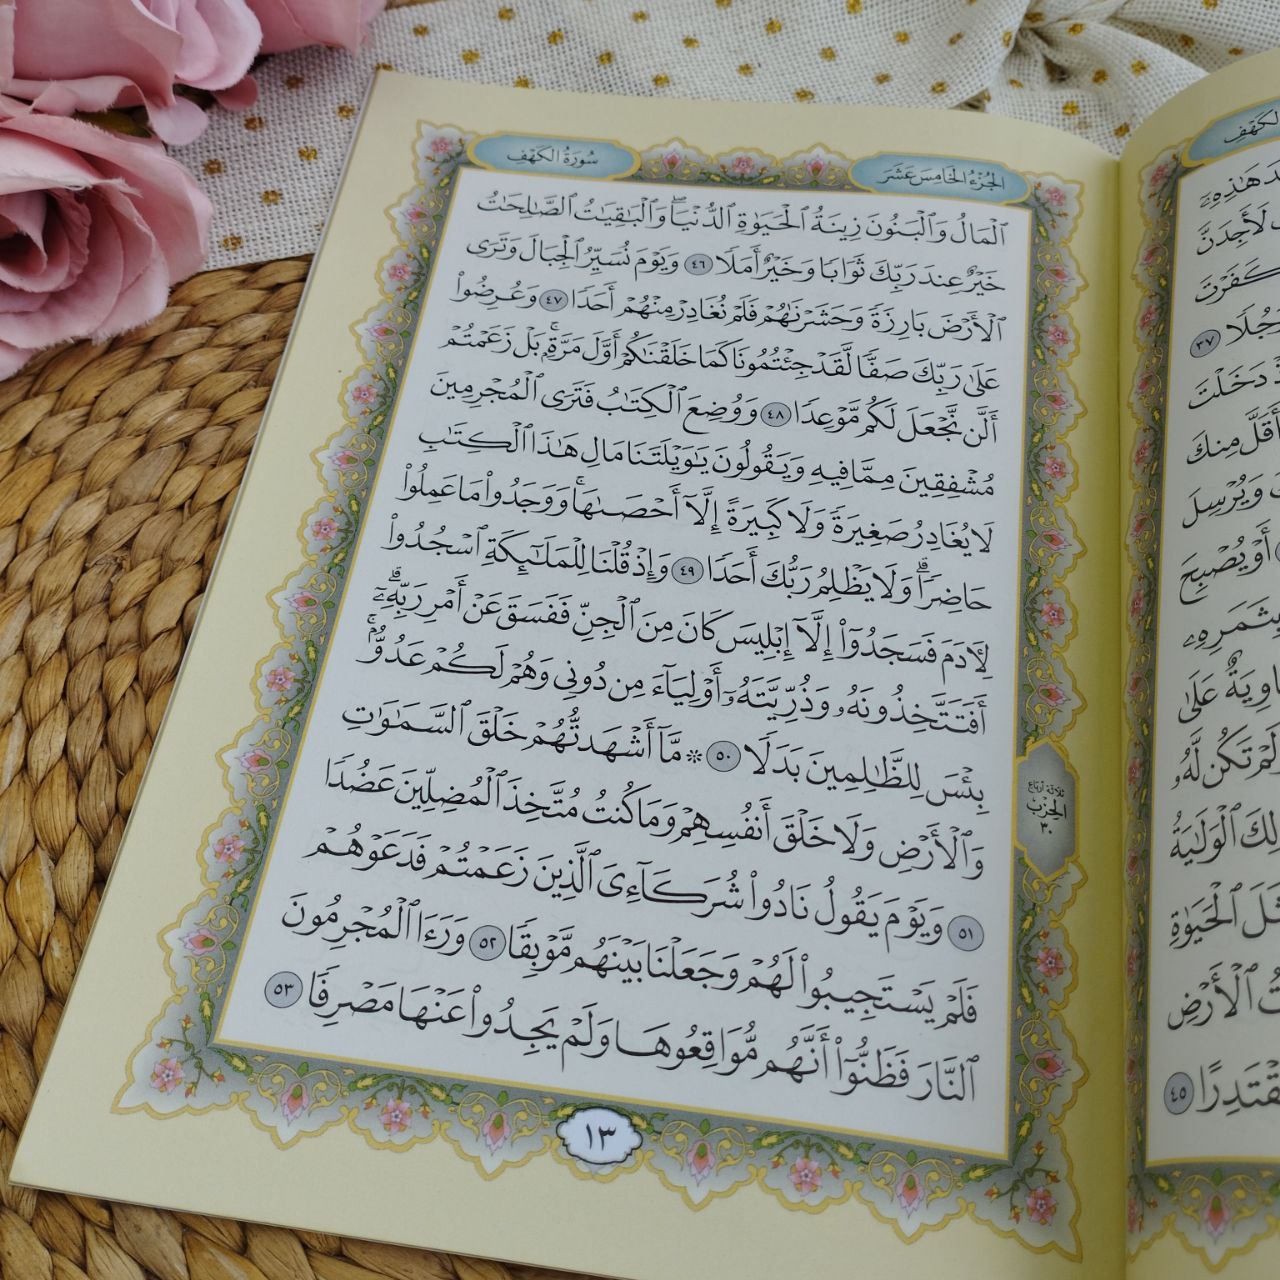 سُورَةُ الكَهْفِ
الجُزْءُ الخَامِسَ عَشَرَ
ٱلْمَالُ وَٱلْبَنُونَ زِينَةُ ٱلْحَيَوٰةِ ٱلدُّنْيَاۖ وَٱلْبَٰقِيَٰتُ ٱلصَّٰلِحَٰتُ
خَيْرٌ عِندَ رَبِّكَ ثَوَابًا وَخَيْرٌ أَمَلًا ٤٦ وَيَوْمَ نُسَيِّرُ ٱلْجِبَالَ وَتَرَى
ٱلْأَرْضَ بَارِزَةً وَحَشَرْنَٰهُمْ فَلَمْ نُغَادِرْ مِنْهُمْ أَحَدًا ٤٧ وَعُرِضُوا۟
عَلَىٰ رَبِّكَ صَفًّا لَّقَدْ جِئْتُمُونَا كَمَا خَلَقْنَٰكُمْ أَوَّلَ مَرَّةٍۭۚ بَلْ زَعَمْتُمْ
أَلَّن نَّجْعَلَ لَكُم مَّوْعِدًا ٤٨ وَوُضِعَ ٱلْكِتَٰبُ فَتَرَى ٱلْمُجْرِمِينَ
مُشْفِقِينَ مِمَّا فِيهِ وَيَقُولُونَ يَٰوَيْلَتَنَا مَالِ هَٰذَا ٱلْكِتَٰبِ
لَا يُغَادِرُ صَغِيرَةً وَلَا كَبِيرَةً إِلَّآ أَحْصَىٰهَاۚ وَوَجَدُوا۟ مَا عَمِلُوا۟
حَاضِرًاۗ وَلَا يَظْلِمُ رَبُّكَ أَحَدًا ٤٩ وَإِذْ قُلْنَا لِلْمَلَٰٓئِكَةِ ٱسْجُدُوا۟
لِءَادَمَ فَسَجَدُوٓا۟ إِلَّآ إِبْلِيسَ كَانَ مِنَ ٱلْجِنِّ فَفَسَقَ عَنْ أَمْرِ رَبِّهِۦٓۗ
أَفَتَتَّخِذُونَهُۥ وَذُرِّيَّتَهُۥٓ أَوْلِيَآءَ مِن دُونِى وَهُمْ لَكُمْ عَدُوٌّۢۚ
بِئْسَ لِلظَّٰلِمِينَ بَدَلًا ٥٠ ۞ مَّآ أَشْهَدتُّهُمْ خَلْقَ ٱلسَّمَٰوَٰتِ
وَٱلْأَرْضِ وَلَا خَلْقَ أَنفُسِهِمْ وَمَا كُنتُ مُتَّخِذَ ٱلْمُضِلِّينَ عَضُدًا
٥١ وَيَوْمَ يَقُولُ نَادُوا۟ شُرَكَآءِىَ ٱلَّذِينَ زَعَمْتُمْ فَدَعَوْهُمْ
فَلَمْ يَسْتَجِيبُوا۟ لَهُمْ وَجَعَلْنَا بَيْنَهُم مَّوْبِقًا ٥٢ وَرَءَا ٱلْمُجْرِمُونَ
ٱلنَّارَ فَظَنُّوٓا۟ أَنَّهُم مُّوَاقِعُوهَا وَلَمْ يَجِدُوا۟ عَنْهَا مَصْرِفًا ٥٣
ثلاثة أرباع
الحزب
٣٠
١٣
الكَهْفِ
هَٰذِهِۦٓ
لَأَجِدَنَّ
أَكَفَرْتَ
رَجُلًا ٣٧
دَخَلْتَ
أَقَلَّ مِنكَ
وَيُرْسِلَ
أَوْ يُصْبِحَ
بِثَمَرِهِۦ
خَاوِيَةٌ عَلَىٰ
وَلَمْ تَكُن لَّهُۥ
هُنَالِكَ ٱلْوَلَٰيَةُ
مَّثَلَ ٱلْحَيَوٰةِ
ٱلْأَرْضِ
مُّقْتَدِرًا ٤٥